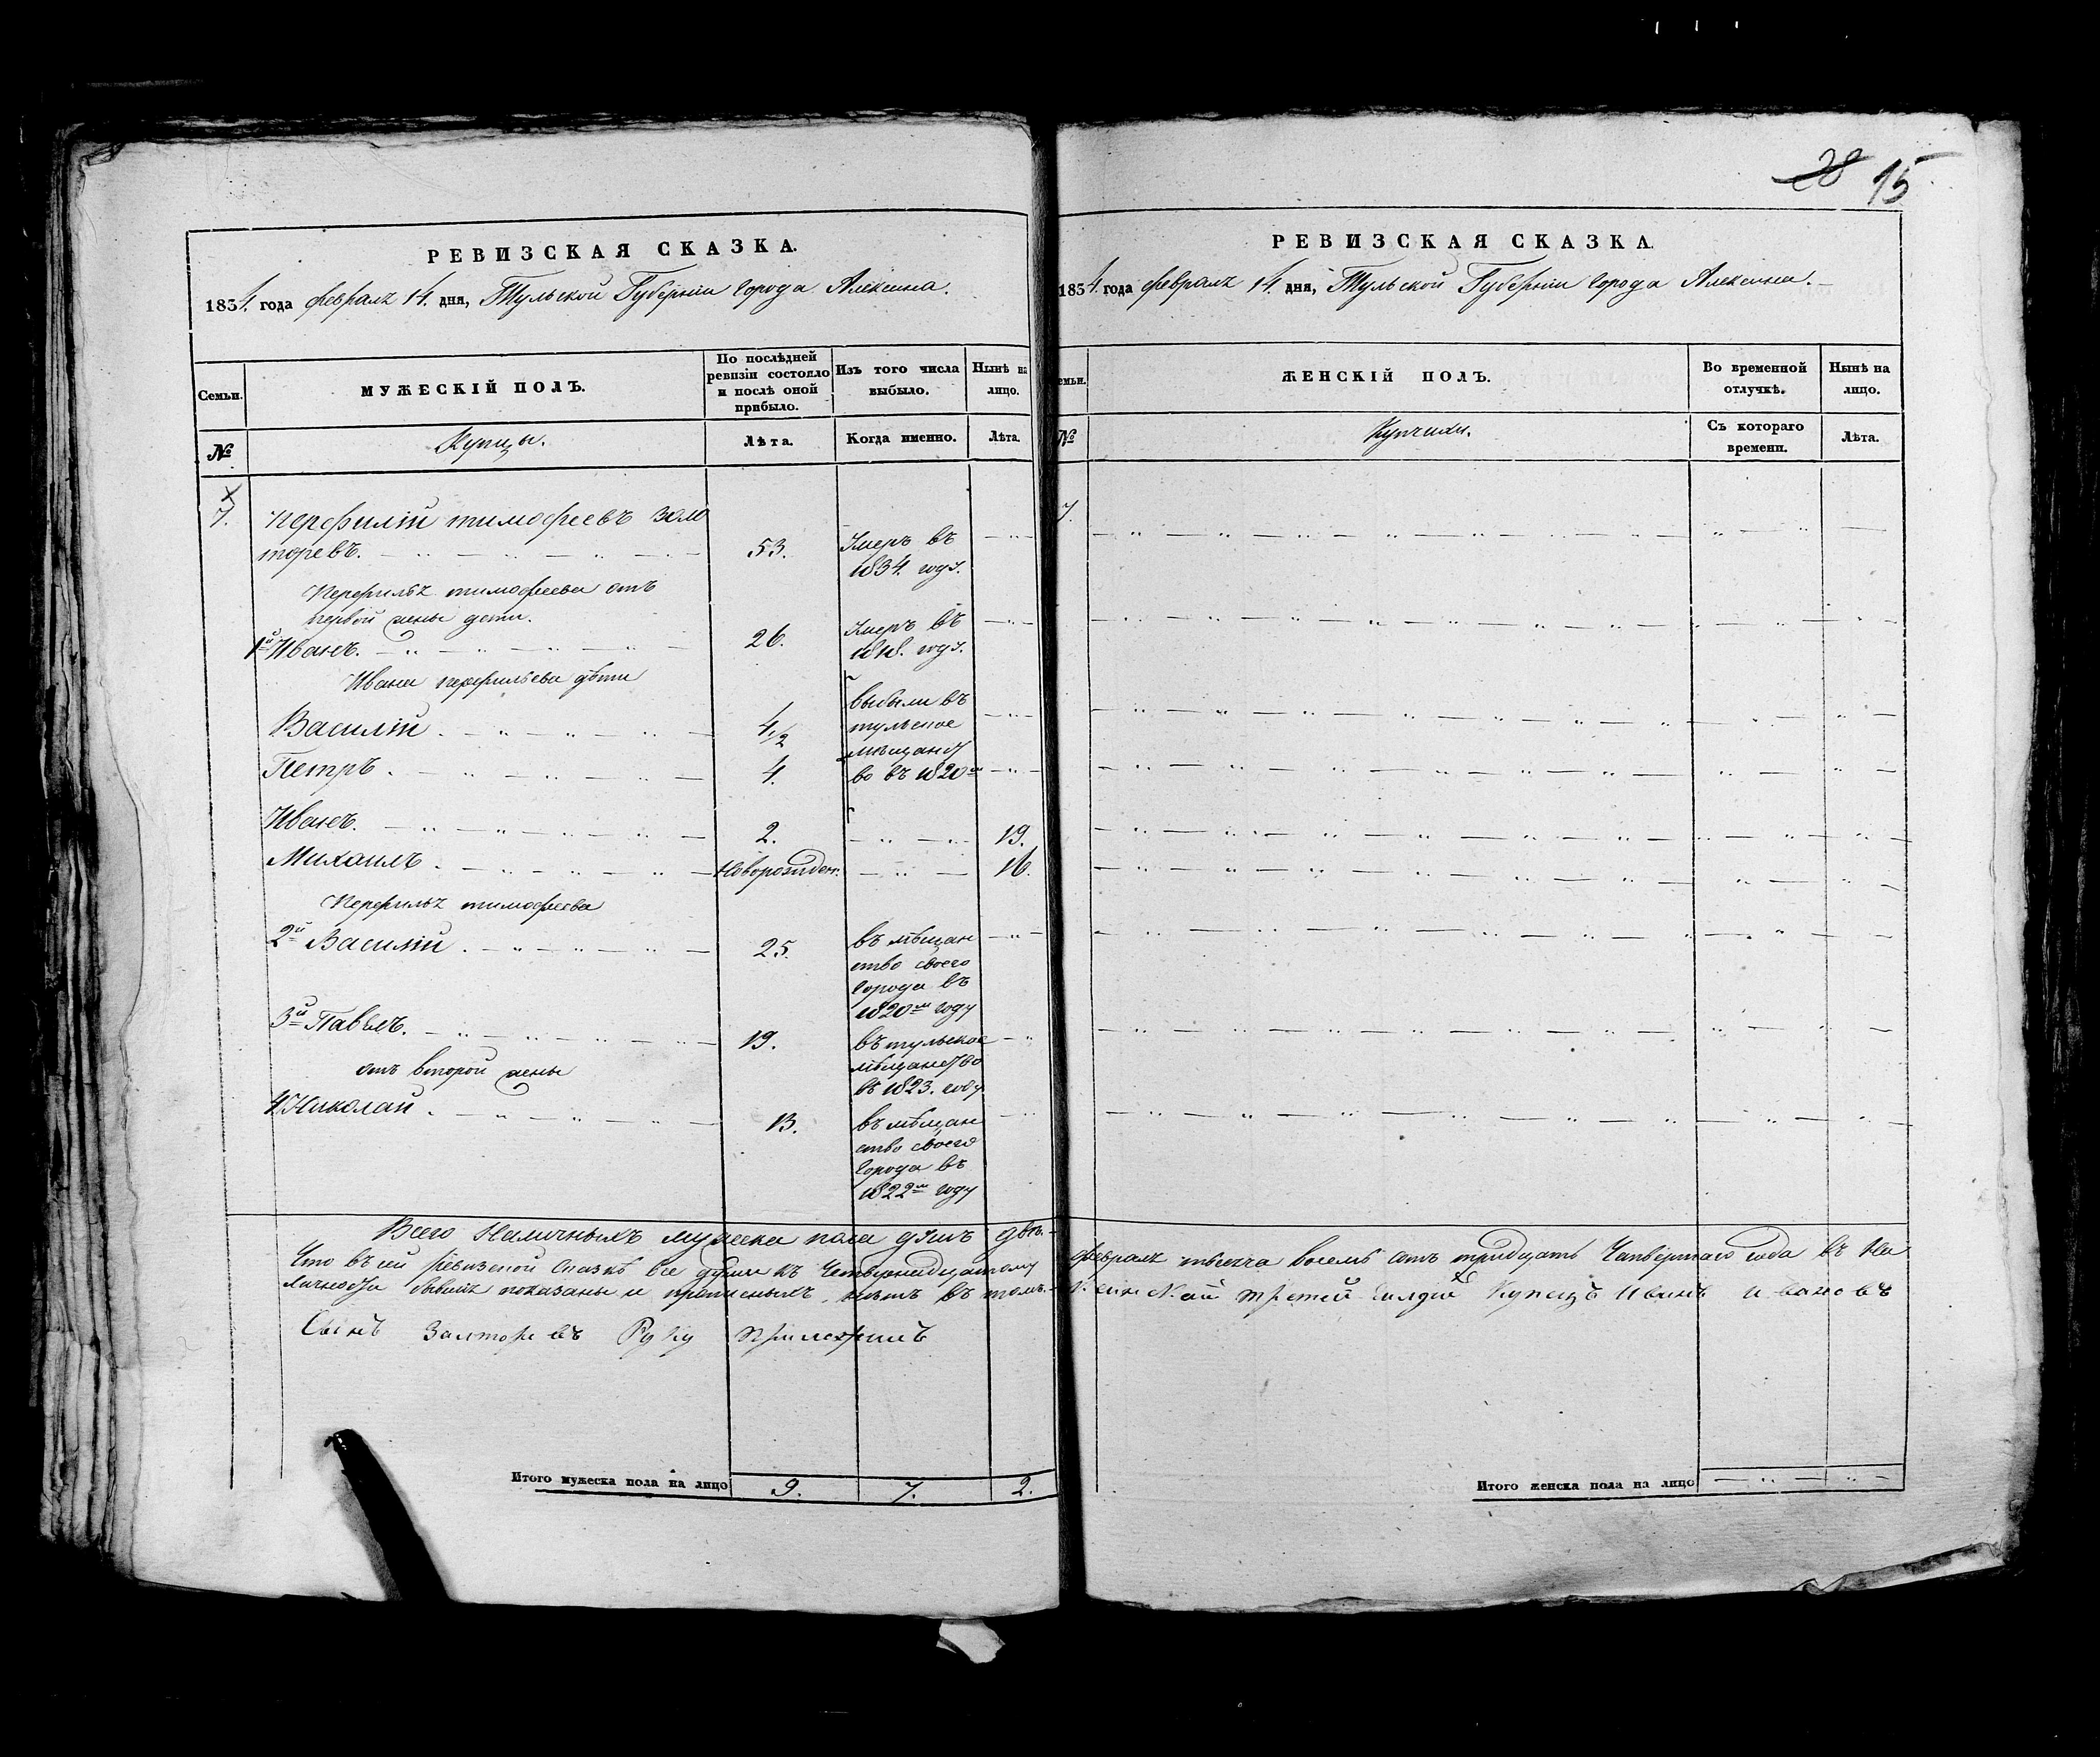 28 15
РЕВИЗСКАЯ СКАЗКА.
1834. года февраля 14. дня, Тульской Губернии города Алексина.
Семьи.
МУЖЕСКІЙ ПОЛЪ.
По послѣдней ревизіи состояло и послѣ оной прибыло.
Изъ того числа выбыло.
Нынѣ на лицо.
№
Купцы.
Лѣта.
Когда именно.
Лѣта.
7. Перфилій тимофеевъ Золо
торевъ. 53. Умеръ въ
1834. году.
Перфилья тимофеева отъ
первой жены дети.
1й Иванъ. 26. Умеръ въ
1818. году.
Ивана перфильева дѣти
Василій. 4 1/2 выбыли въ
тульское
Петръ. 4. мѣщанст
во въ 1820м
Иванъ. 2. 19.
Михаилъ. Новорожден. 16.
Перфилья тимофеева
2й Василій. 25. въ мѣщан
ство своего
города въ
1820м году
3й Павелъ. 19. въ тульское
мѣщанство
въ 1823. году
отъ второй жены
4. Николай. 13. въ мѣщан
ство своего
города въ
1822м году
Всего Наличныхъ мужеска пола душъ двѣ.
Что въ сей ревизской сказкѣ все души къ Четырнидцатому
личности бывшія показаны и прописныхъ нѣтъ въ томъ.
Сынъ Залторевъ Руку приложилъ
Итого мужеска пола на лицо 9. 7. 2.
РЕВИЗСКАЯ СКАЗКА.
1834 года февраля 14. дня, Тульской Губерніи города Алексина.
Семьи.
ЖЕНСКІЙ ПОЛЪ.
Во временной отлучкѣ.
Нынѣ на лицо.
№
Купчихи.
Съ котораго времени.
Лѣта.
7.
февраля тысеча восемь сотъ тридцать Четвертаго года въ На
третей гилдіи Купецъ Иванъ Ивановъ
Итого женска пола на лицо